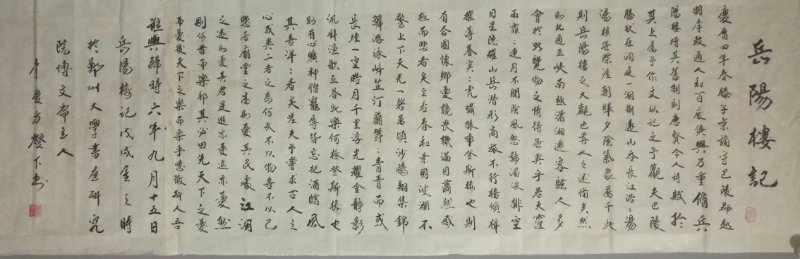 岳陽樓記
慶曆四年春滕子京謫守巴陵郡越
明年政通人和百廢俱興乃重脩岳
陽樓增其舊制刻唐賢今人詩賦於
其上屬予作文以記之予觀夫巴陵
勝狀在洞庭一湖銜遠山吞長江浩浩湯
湯橫無際涯朝暉夕陰氣象萬千此
則岳陽樓之大觀也前人之述備矣然
則北通巫峽南極瀟湘遷客騷人多
會於此覽物之情得無異乎若夫霪
雨霏霏連月不開陰風怒號濁浪排空
日星隱耀山岳潛形商旅不行檣傾楫
摧薄暮冥冥虎嘯猿啼登斯樓也則
有去國懷鄉憂讒畏譏滿目蕭然感
極而悲者矣至若春和景明波瀾不
驚上下天光一碧萬頃沙鷗翔集錦
鱗游泳岸芷汀蘭鬱鬱青青而或
長煙一空皓月千里浮光耀金靜影
沉璧漁歌互答此樂何極登斯樓也
則有心曠神怡寵辱皆忘把酒臨風
其喜洋洋者矣嗟夫予嘗求古人之
心或異二者之為何哉不以物喜不以己
悲居廟堂之高則憂其民處江湖
之遠則憂其君是進亦憂退亦憂然
則何時而樂耶其必曰先天下之憂
而憂後天下之樂而樂乎噫微斯人吾
誰與歸時六年九月十五日
岳陽樓記戊戌之時
於鄭州大學書法研究
院博文齋主人
下書